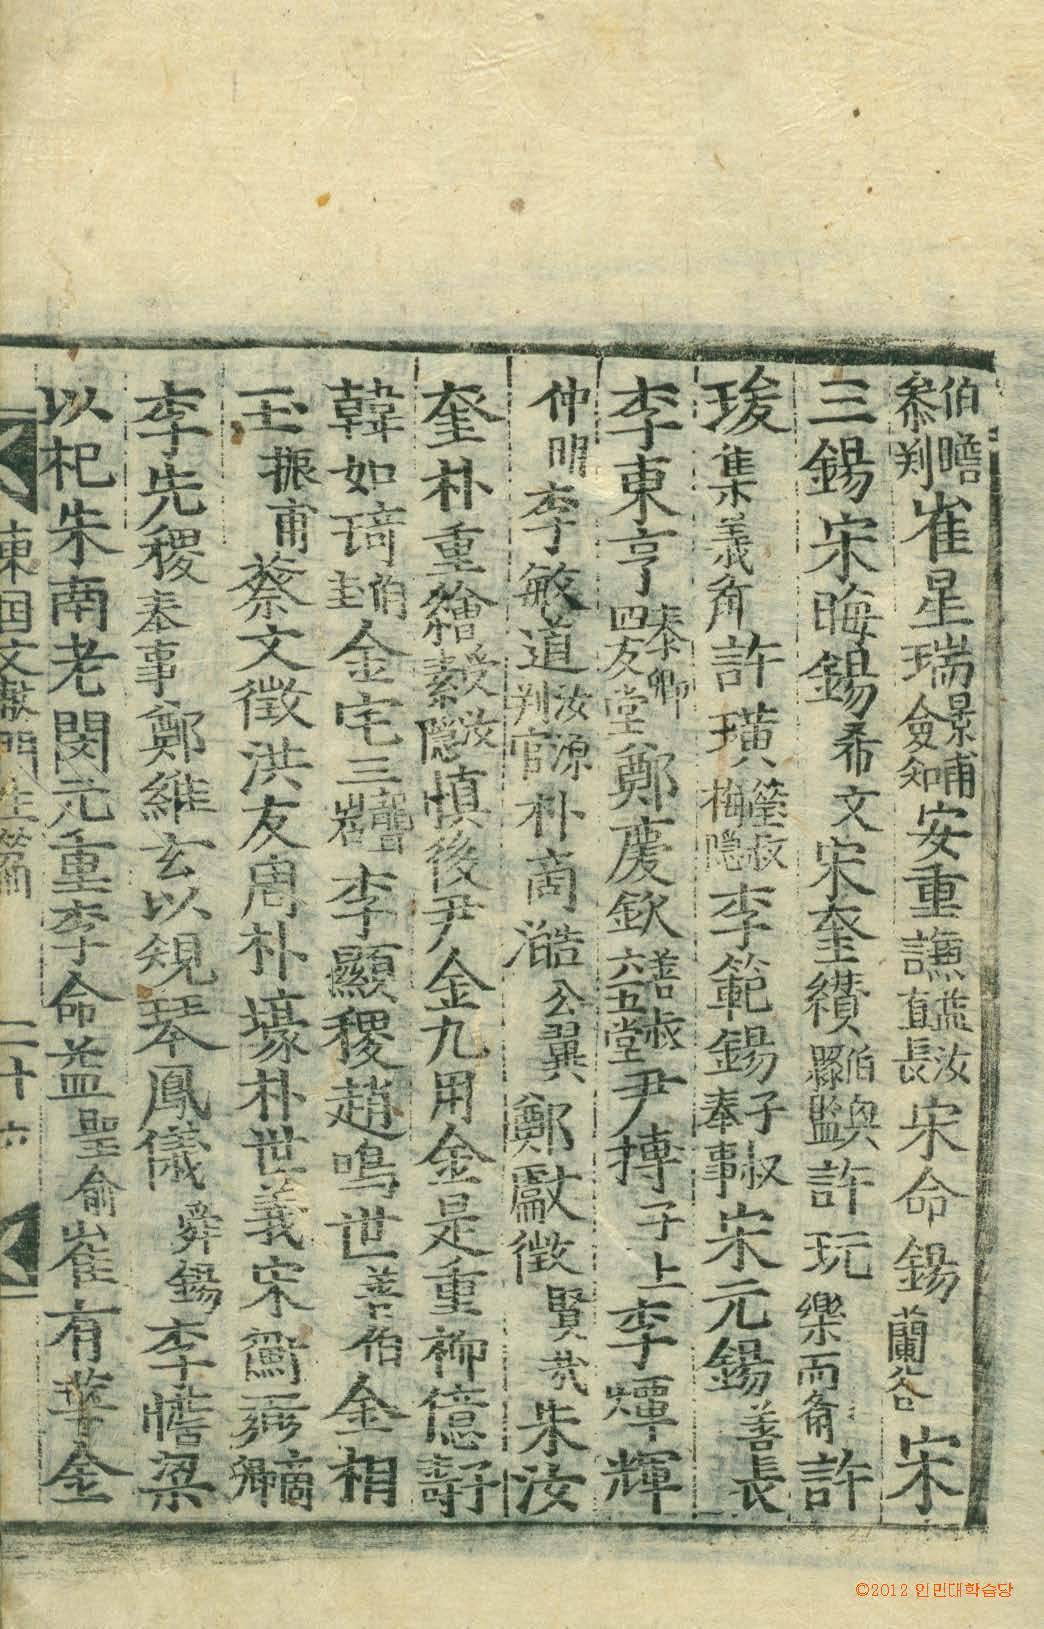 伯瞻叅判崔星瑞景甫僉知安重謙益汝直長宋命錫蘭谷宋
三錫宋晦錫希文宋奎纘伯奐縣監許玩樂而翁許
琰集義翁許璜瑩叔梅隱李範錫子叔奉事宋元錫善長
李東亨泰卿四友堂鄭慶欽善叔六五堂尹搏子上李煇輝
仲明李敏道汝源判官朴商澔公翼鄭獻徵賢哉朱汝
奎朴重繪受汝素隱愼後尹金九用金是重柳億子壽
韓如琦伯圭金宅三聾巖李顯稷趙鳴世善伯金相
玉振甫蔡文徵洪友周朴壕朴世義宋
李先稷奉事鄭維玄以規琴鳳儀舜錫李憺梁
以杞朱南老閔元重李命益聖俞崔有華金
東國文獻門生篇 二十六
©2012 인민대학습당